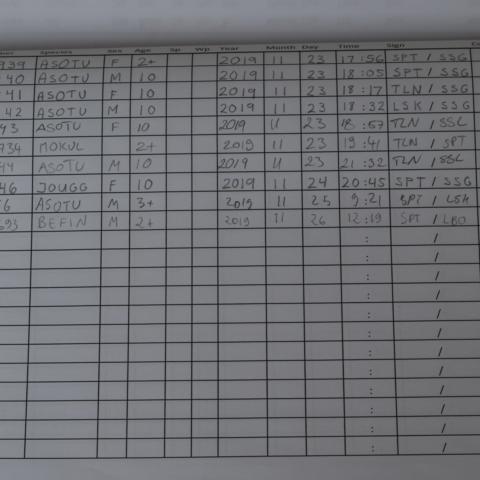 Species Sex Age Sp Wp Year Month Day Time Sign
939 ASOTU F 2+ 2019 11 23 17:56 SPT / SSG
40 ASOTU M 10 2019 11 23 18:05 SPT / SSG
41 ASOTU F 10 2019 11 23 18:17 TLN / SSG
42 ASOTU M 10 2019 11 23 18:32 LSK / SSG
43 ASOTU F 10 2019 11 23 18:57 TLN / SSL
934 MOKUL 2+ 2019 11 23 19:41 TLN / SPT
44 ASOTU M 10 2019 11 23 21:32 TLN / SSL
46 JOUGG F 10 2019 11 24 20:45 SPT / SSG
6 ASOTU M 3+ 2019 11 25 9:21 SPT / LSK
693 BEFIN M 2+ 2019 11 26 12:19 SPT / LBO
: /
: /
: /
: /
: /
: /
: /
: /
: /
: /
: /
: /